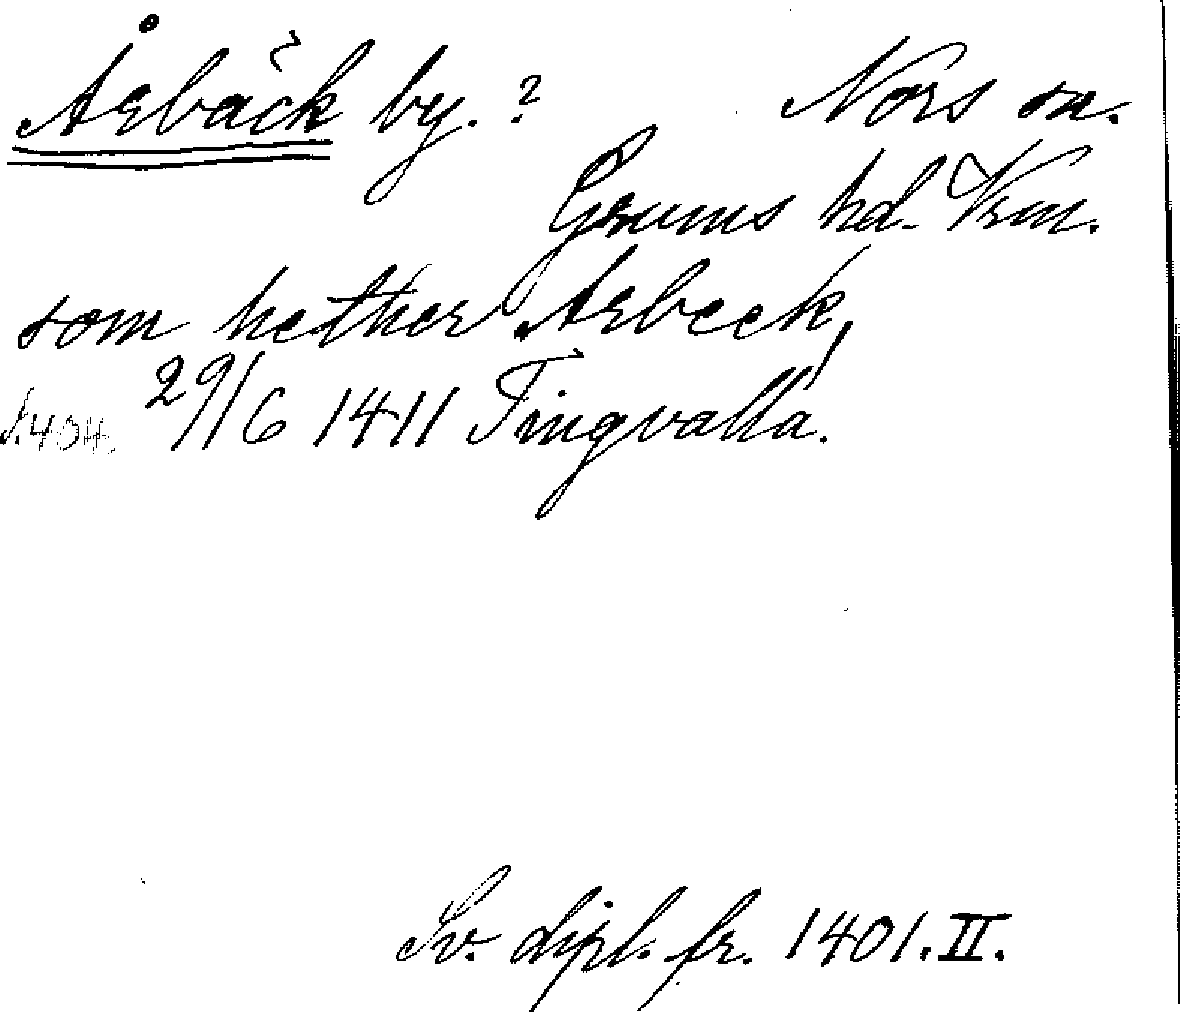 Årbäck by. ? Nors sn.
Grums hd. Vrm.
som hether Arbeek,
S. 404. 29/6 1411 Tingvalla.
Sv. dipl. fr. 1401. II.